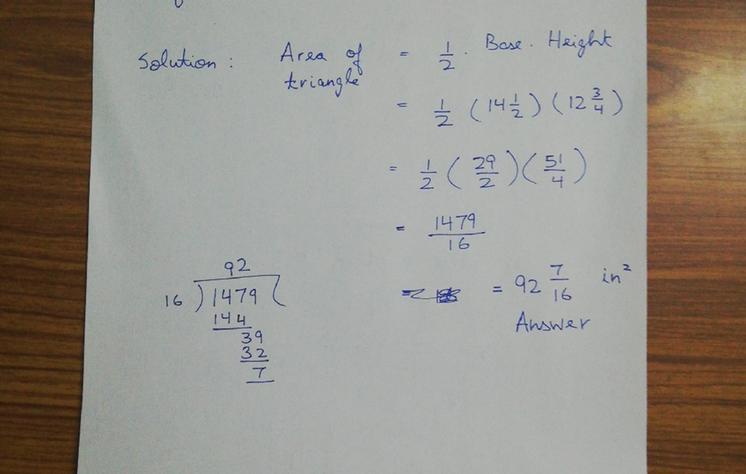 Solution : Area of triangle = 1/2 . Base . Height
= 1/2 (14 1/2) (12 3/4)
= 1/2 (29/2) (51/4)
= 1479/16
= 92 7/16 in²
Answer
92
16 ) 1479 (
144
39
32
7